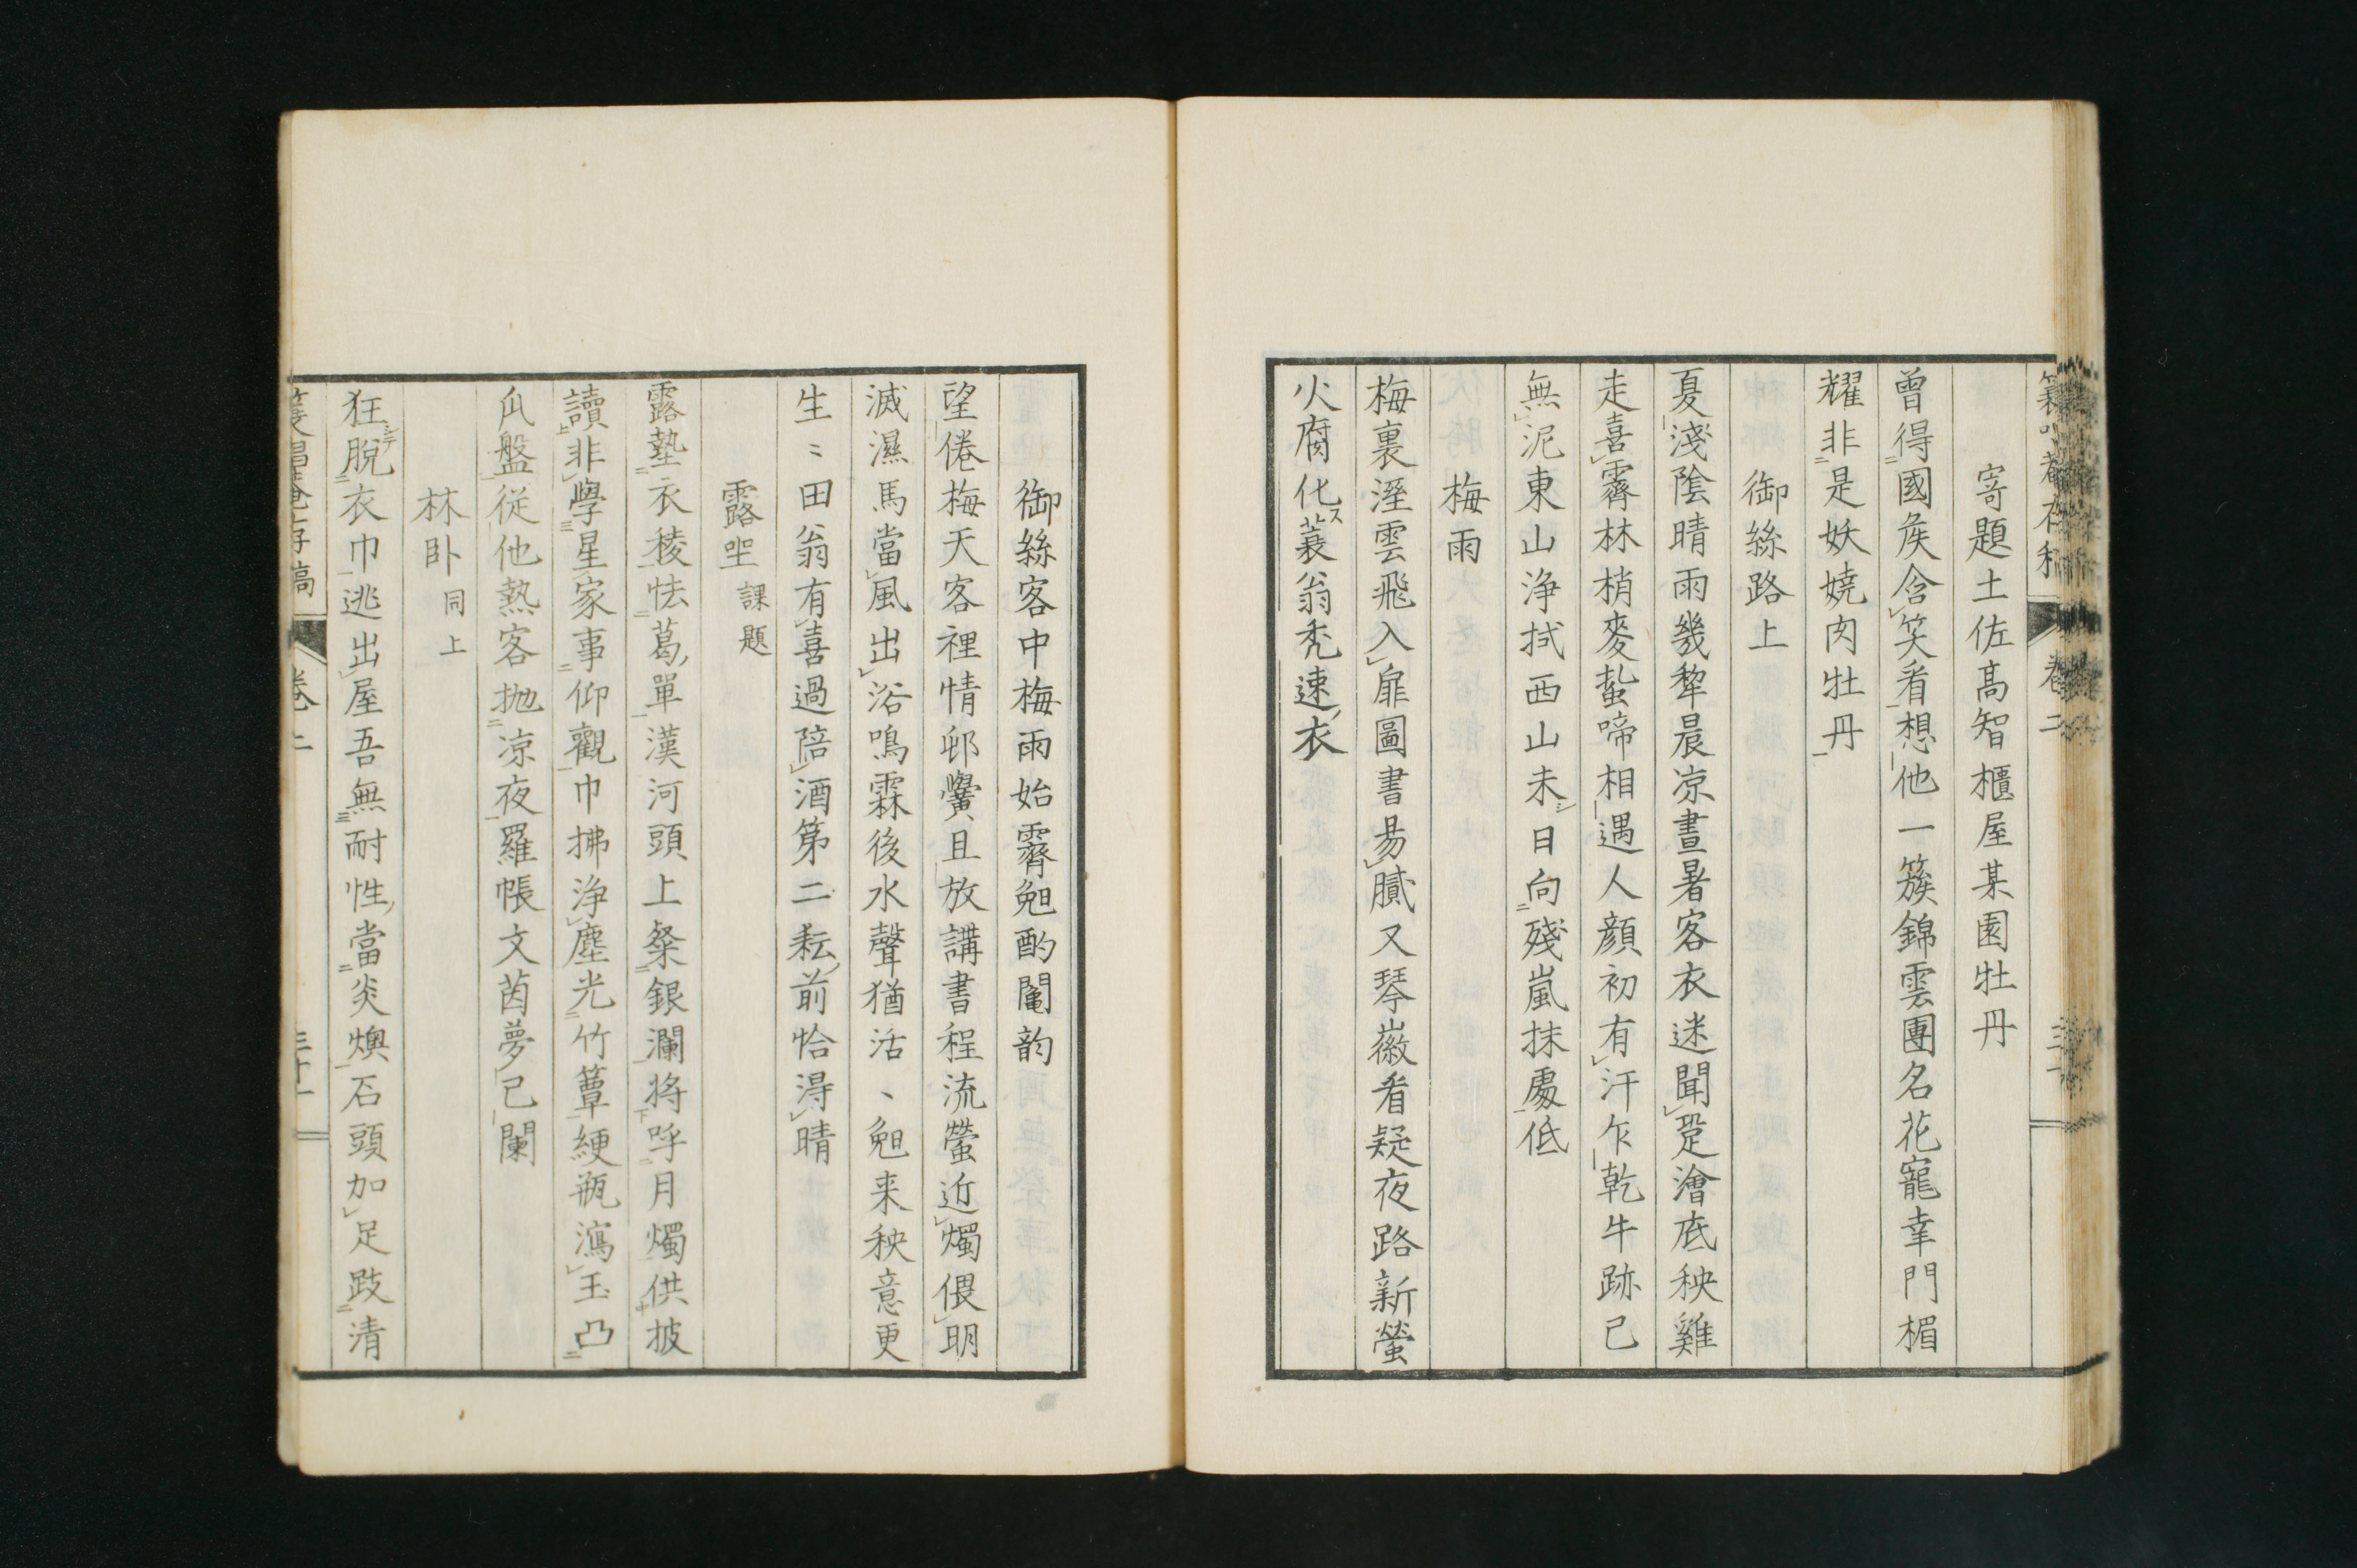 寄題土佐高智櫃屋某園牡丹
曾得國矦含笑看想他一簇錦雲團名花寵幸門楣
耀非是妖嬈肉牡丹
御絲路上
夏淺陰晴雨幾犂晨凉晝暑客衣迷聞跫澮底秧雞
走喜霽林梢麥蚻啼相遇人顔初有汗乍乾牛跡已
無泥東山浄拭西山未日向殘嵐抹處低
梅雨
梅裏溼雲飛入扉圖書易膩又琴徽看疑夜路新螢
火腐化蓑翁禿速衣
御絲客中梅雨始霽兔酌闈韵
望倦梅天客裡情邸黌且放講書程流螢近燭偎明
滅濕馬當風出浴鳴霖後水聲猶活、兔来秧意更
生〻田翁有喜過陪酒第二耘前恰淂晴
露坐 課題
露墊衣稜怯葛單漢河頭上粲銀瀾将呼月燭供披
讀非學星家事仰觀巾拂浄塵光竹簟綆瓶瀉玉凸
瓜盤從他熱客抛凉夜羅帳文茵夢已闌
林卧 同上
狂脱衣巾逃出屋吾無耐性當炎燠石頭加足跂清
卷二